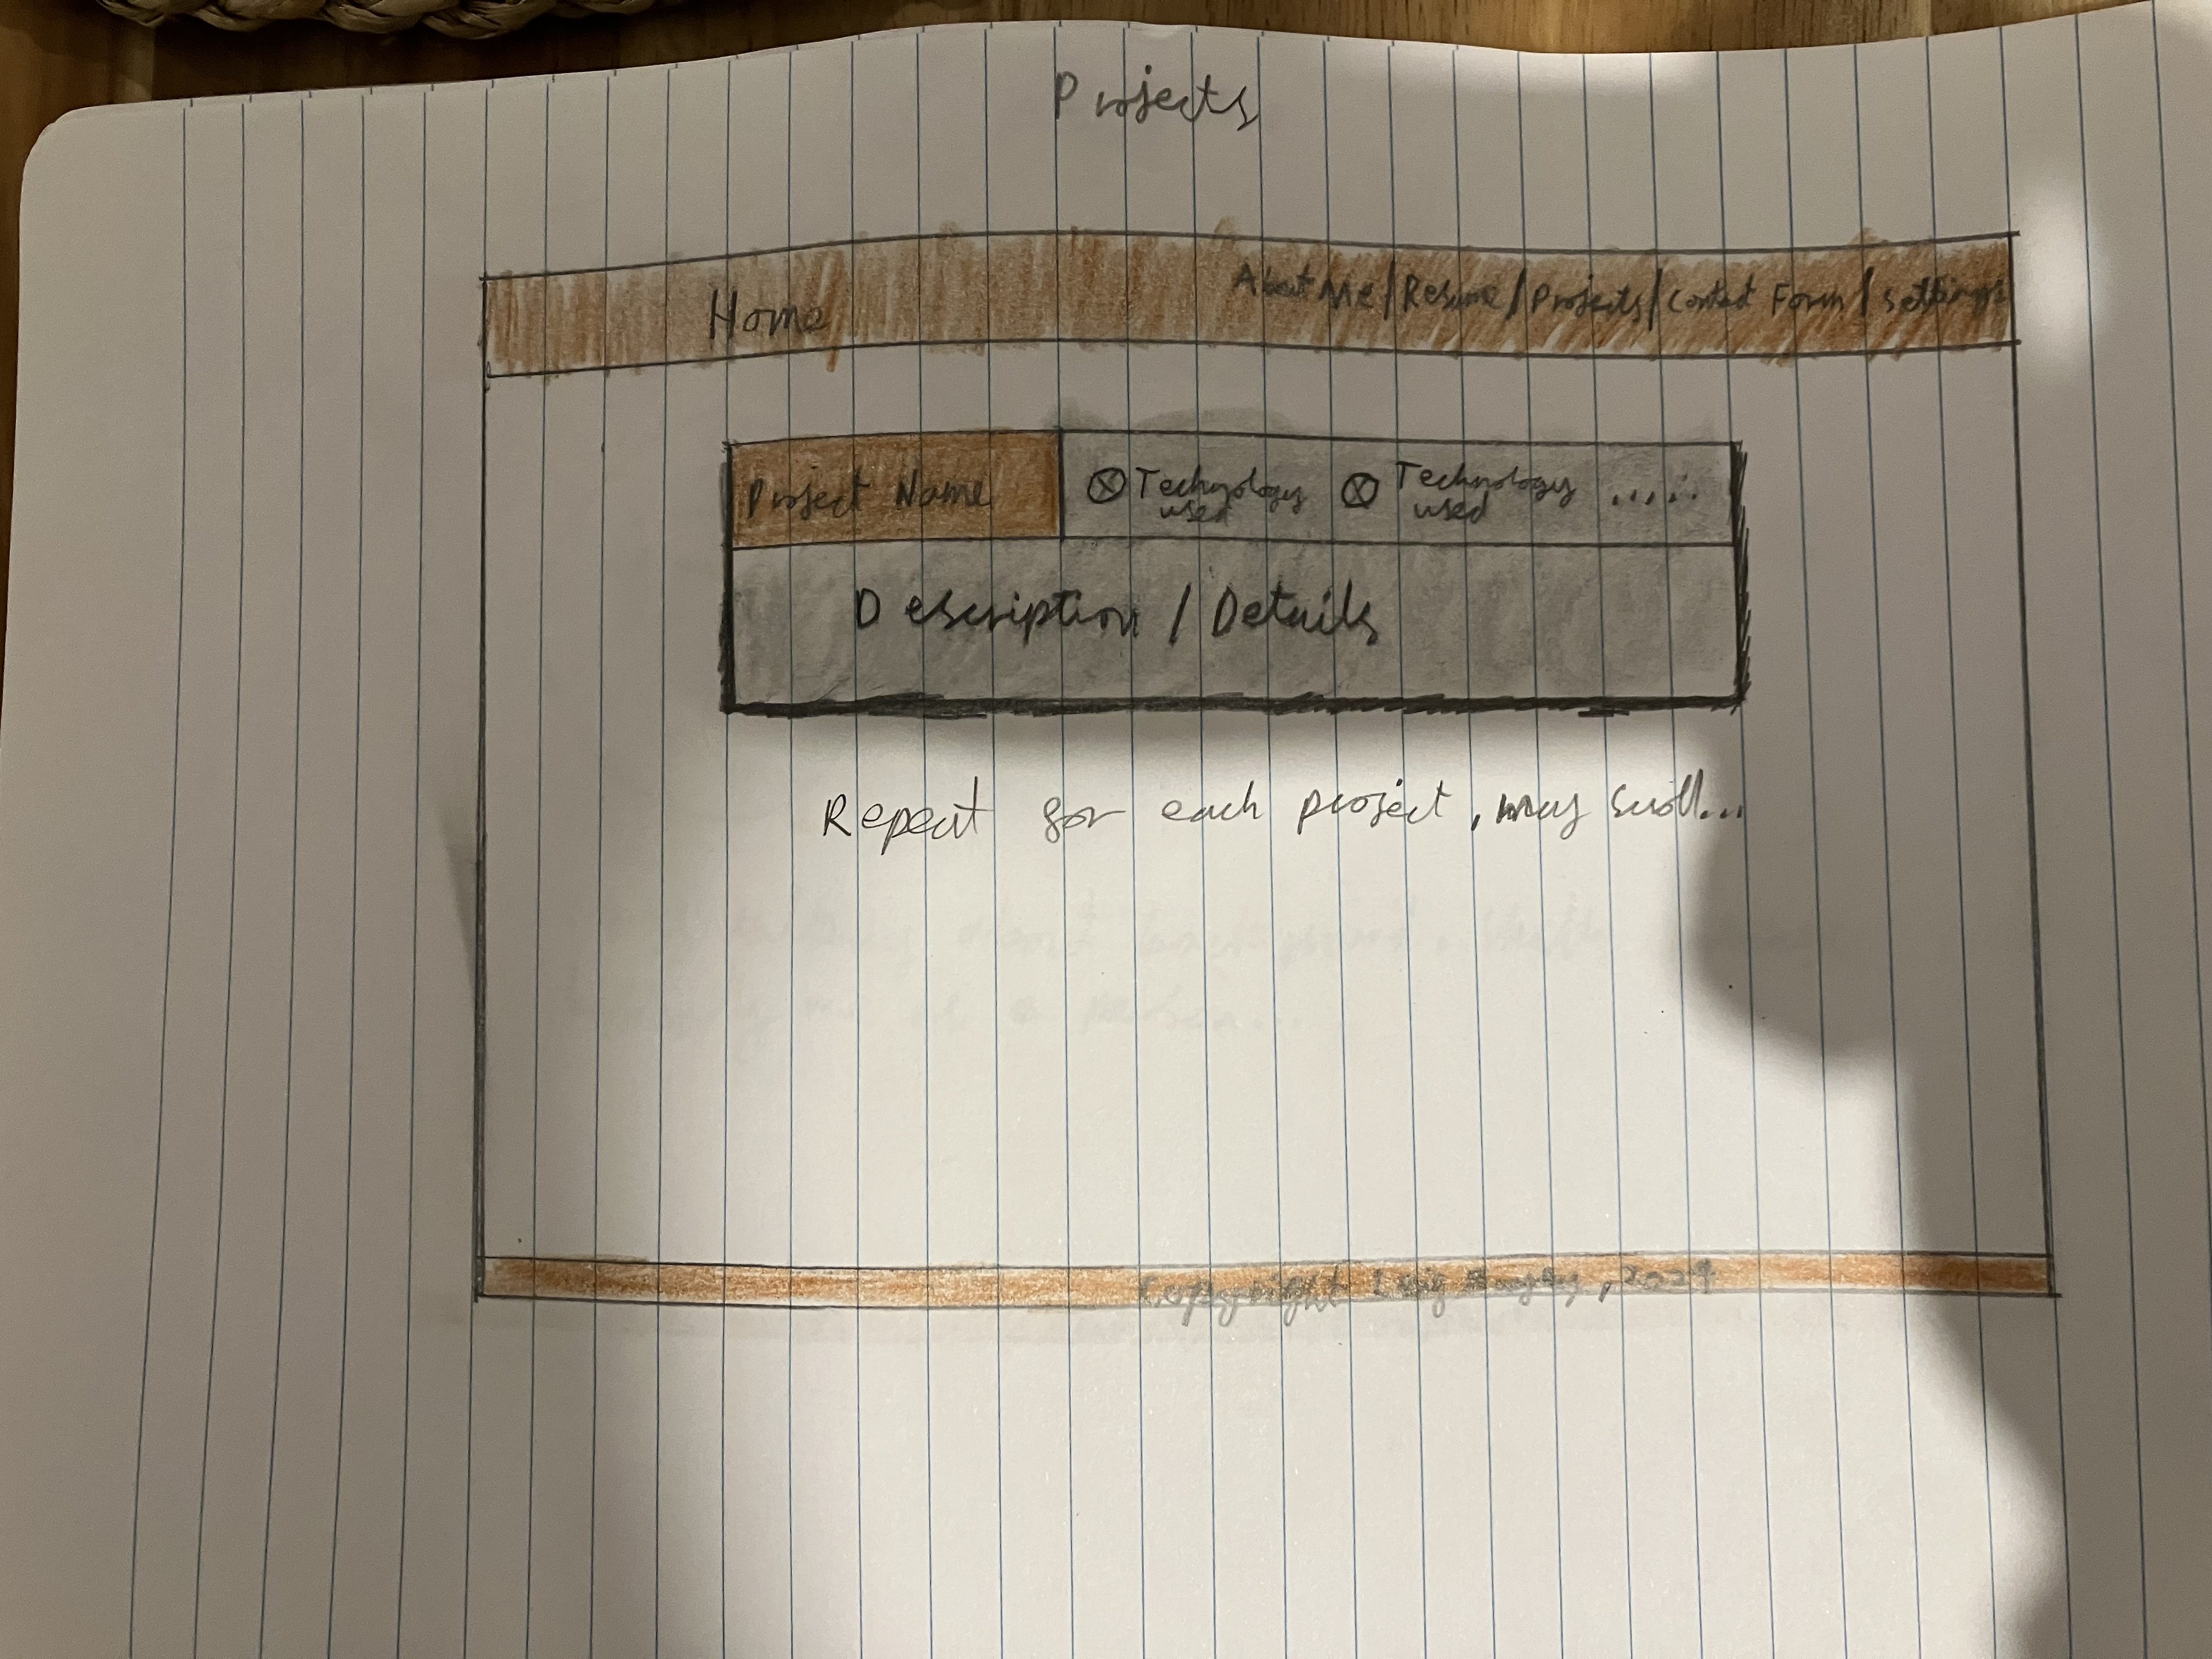 Projects
Home
About Me/Resume/Projects/Contact Form/settings
Project Name
Technology
used
Technology
used
.....
Description/Details
Repeat for each project, may scroll...
Copyright
, 2024